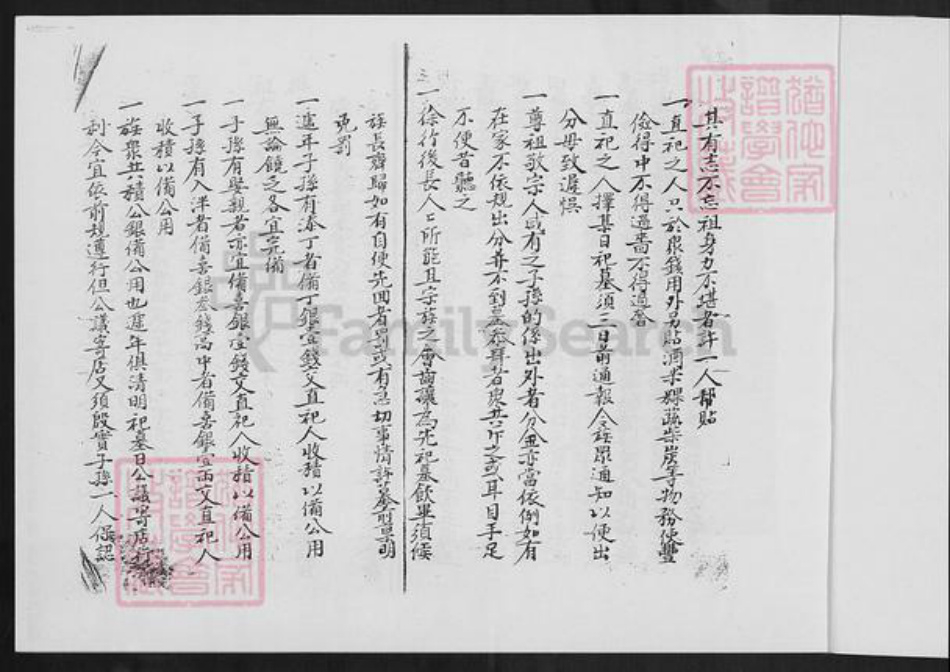 其有志不忘祖身力不堪者許一人幫貼
一直祀之人只於眾錢用外另貼酒米粿蔬柴炭等物務使豐
儉得中不得過嗇不得過奢
一直祀之人擇某日祀墓須三日前通報令族眾通知以便出
分毋致遲悞
一尊祖敬宗人或有之子孫的係出外者分金亦當依例如有
在家不依規出分并不到墓參拜者眾共斥之或耳目手足
不便者聽之
一徐行後長人人所能且宗族之會論讓為先祀墓飲畢須候
族長齊歸如有自便先回者罰或有急切事情許稟明
免罰
一遞年子孫有添丁者備丁銀壹錢交直祀人收積以備公用
無論饒乏各宜完備
一子孫有娶親者亦宜備喜銀壹錢交直祀人收積以備公用
一子孫有入泮者備喜銀叁錢高中者備喜銀壹兩交直祀人
收積以備公用
一族眾共積公銀備公用也遞年俱清明祀墓日公議寄店行
利今宜依前規遵行但公議寄店又須殷實子孫一人保認
FamilySearch